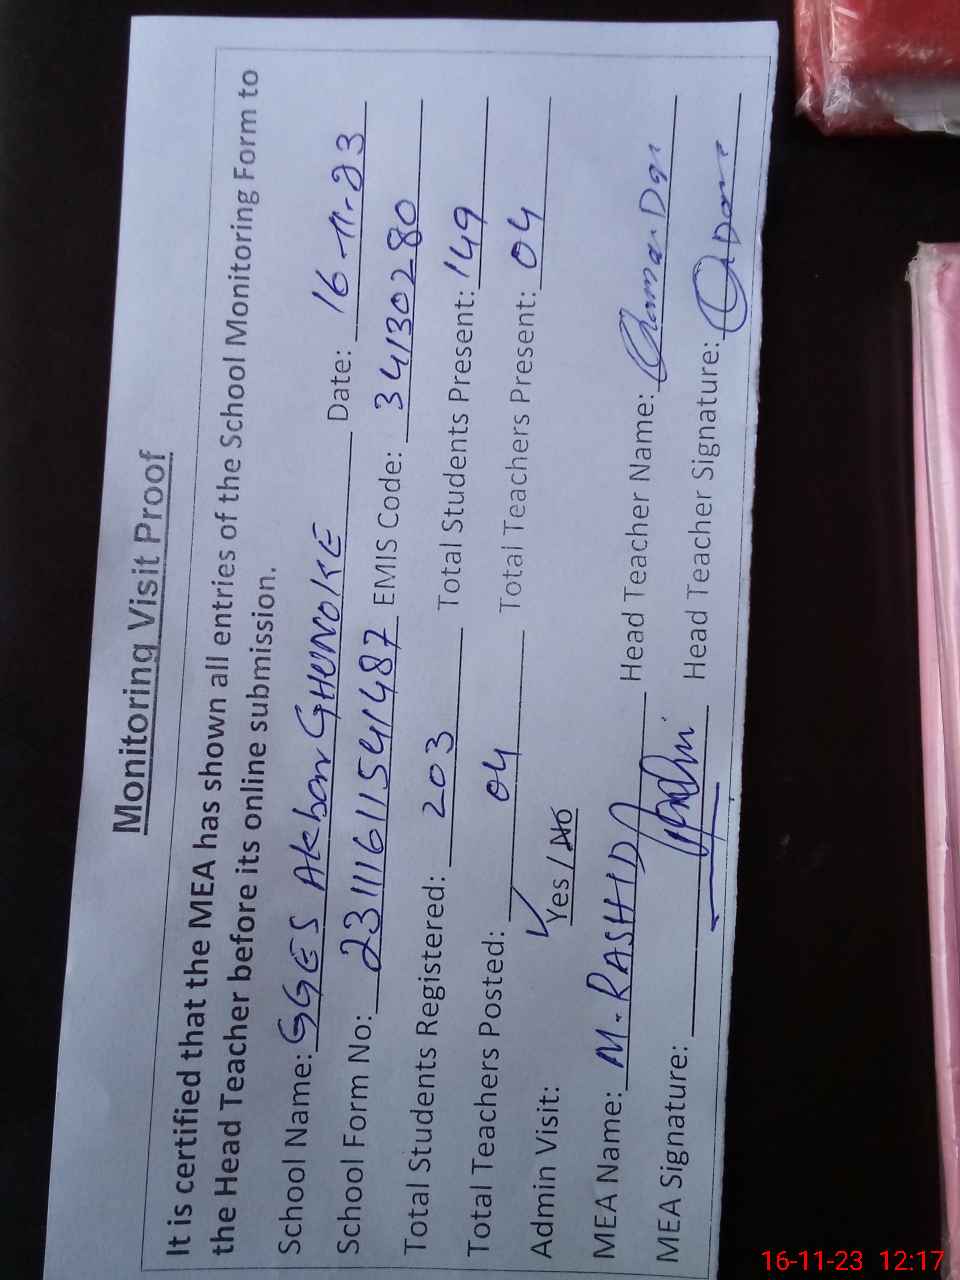 Monitoring Visit Proof
It is certified that the MEA has shown all entries of the School Monitoring Form to
the Head Teacher before its online submission.
School Name: GGES Akbar GHUNOKE Date: 16-11-23
School Form No: 231116115541487 EMIS Code: 34130280
Total Students Registered: 203 Total Students Present: 149
Total Teachers Posted: 04 Total Teachers Present: 04
Admin Visit: Yes / No
MEA Name: M. RASHID Head Teacher Name:
MEA Signature: Head Teacher Signature:
16-11-23 12:17